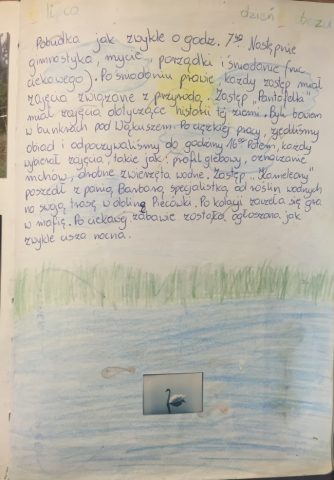 lipco dzień
Pobudka jak zwykle o godz. 7³⁰ Następnie
gimnastyka, mycie, porządki i śniadanie (nic
ciekawego). Po śniadaniu prawie każdy zastęp miał
zajęcia związane z przyrodą. Zastęp „Pantofelki"
miał zajęcia dotyczące historii tej ziemi. Byli bowiem
w bunkrach pod Wałkuszem. Po ciężkiej pracy, zjedliśmy
obiad i odpoczywaliśmy do godziny 16⁰⁰ Potem, każdy
wybierał zajęcia takie jak: profil glebowy, oznaczanie
mchów, drobne zwierzęta wodne. Zastęp „Kameleony"
poszedł z panią Barbarą specjalistką od roślin wodnych
na swoją trasę w dolinę Piecówki. Po kolacji zaczęła się gra
w mafię. Po ciekawej zabawie została ogłoszona jak
zwykle cisza nocna.